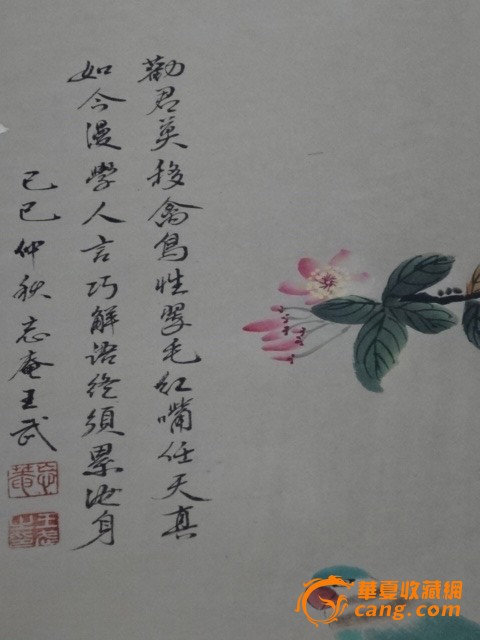 勸君莫移禽鳥性翠毛紅嘴任天真
如今漫學人言巧解語終須累池身
己巳仲秋忘庵王武
華夏收藏網
cang.com